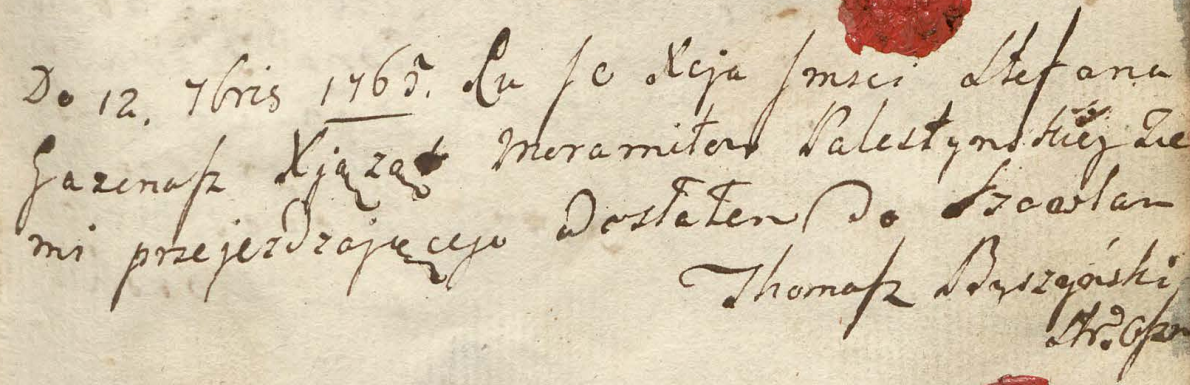 Do 12. 7bris 1765. Ku JO Xcja Jmsci Stefana
Gazenasz Xjążąt Moramitow Palestynskiey Zie
mi przejezdzającego Dostałem Do Szawlan
Thomasz Byszyński